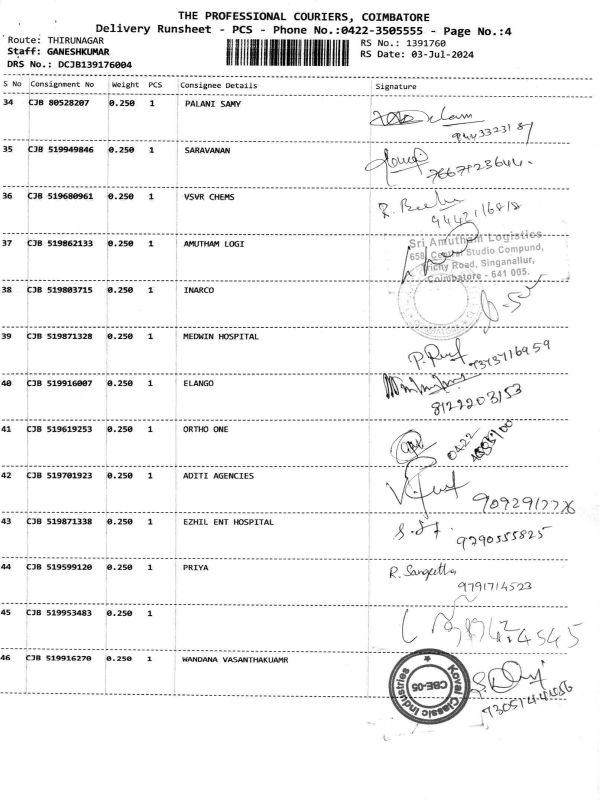 THE PROFESSIONAL COURIERS, COIMBATORE
Delivery Runsheet - PCS - Phone No.:0422-3505555 - Page No.:4
Route: THIRUNAGAR
Staff: GANESHKUMAR
DRS No.: DCJB139176004
RS No.: 1391760
RS Date: 03-Jul-2024
S No Consignment No Weight PCS Consignee Details Signature
34 CJB 80528207 0.250 1 PALANI SAMY
35 CJB 519949846 0.250 1 SARAVANAN
7667723644.
36 CJB 519680961 0.250 1 VSVR CHEMS
37 CJB 519862133 0.250 1 AMUTHAM LOGI
Sri Amutham Logistics
658, Central Studio Compund,
Trichy Road, Singanallur,
Coimbatore - 641 005.
38 CJB 519803715 0.250 1 INARCO
39 CJB 519871328 0.250 1 MEDWIN HOSPITAL
7373716959
40 CJB 519916007 0.250 1 ELANGO
8122203153
41 CJB 519619253 0.250 1 ORTHO ONE
0422
42 CJB 519701923 0.250 1 ADITI AGENCIES
43 CJB 519871338 0.250 1 EZHIL ENT HOSPITAL
9790555825
44 CJB 519599120 0.250 1 PRIYA R. Sangeetha
9791714523
45 CJB 519953483 0.250 1
46 CJB 519916270 0.250 1 WANDANA VASANTHAKUAMR
Kovai Classic Industries
CBE-05